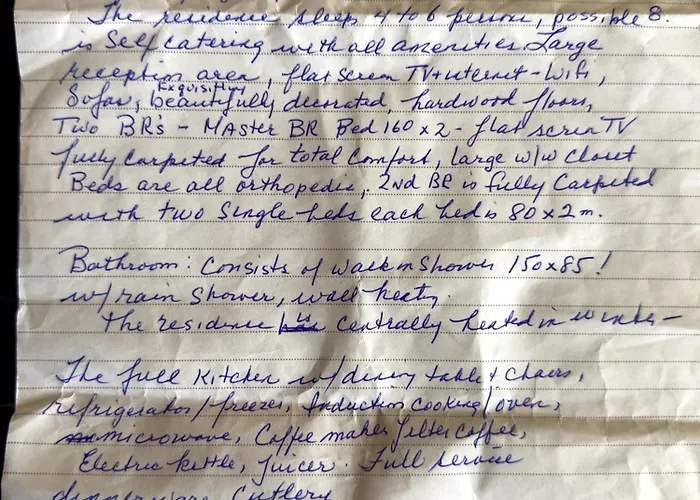 The residence sleeps 4 to 6 person, possible 8.
is Self catering with all amenities. Large
reception area, flat screen TV + internet - Wifi,
Exquisitly
Sofas, beautifully decorated, hardwood floors,
Two BR's - MAster BR Bed 160 x 2 - flat screen TV
fully carpeted for total comfort, large w/w closet
Beds are all orthopedic, 2nd BR is fully Carpeted
with two Single beds each bed is 80 x 2 m.
Bathroom: Consists of walk in Shower 150 x 85!
w/ rain shower, wall heaty.
The residence is centrally heated in winter -
The full Kitchen w/ dining table + chairs,
refrigerator/freezer, Induction cooking/oven,
microwave, Coffee maker filter coffee,
Electric kettle, juicer. Full service
dinnerware, Cutlery